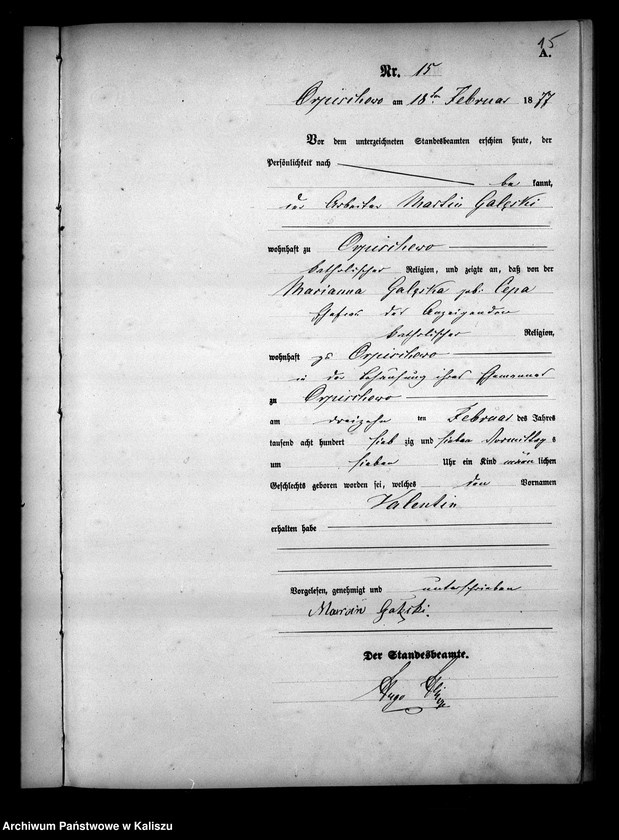 15
A.
Nr. 15
Orpischewo am 18ten Februar 1877
Vor dem unterzeichneten Standesbeamten erschien heute, der
Persönlichkeit nach
be kannt,
der Arbeiter Martin Galęski
wohnhaft zu Orpischewo
katholischer Religion, und zeigte an, daß von der
Marianna Galęska geb. Cepa
Ehefrau des Anzeigenden
katholischer Religion,
wohnhaft zu Orpischewo
in der Behausung ihres Ehemannes
zu Orpischewo
am dreizehn ten Februar des Jahres
tausend acht hundert sieb zig und sieben Vormittag s
um sieben Uhr ein Kind männ lichen
Geschlechts geboren worden sei, welches den Vornamen
Valentin
erhalten habe
Vorgelesen, genehmigt und unterschrieben
Marcin Galęski.
Der Standesbeamte.
Hugo
Archiwum Państwowe w Kaliszu